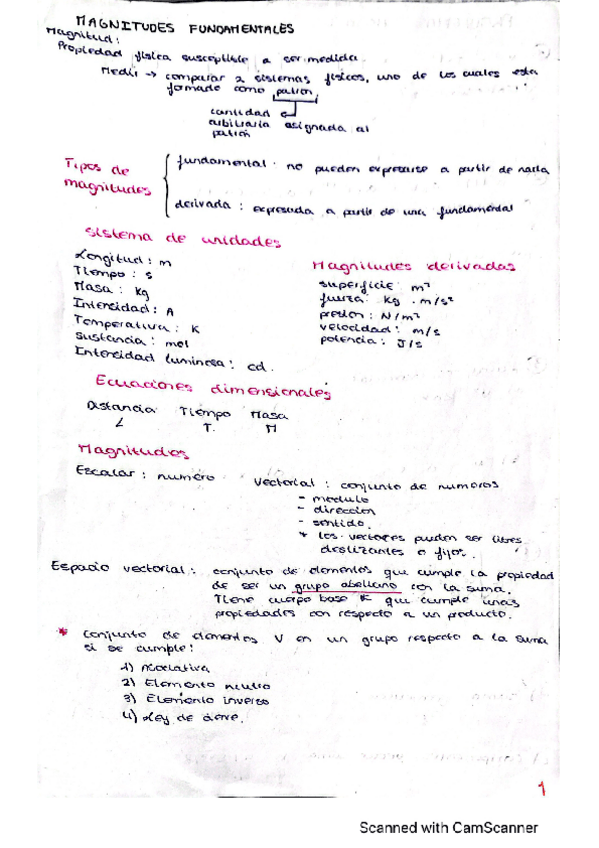 MAGNITUDES FUNDAMENTALES
Magnitud:
Propiedad física susceptible a ser medida.
Medir → comparar 2 sistemas físicos, uno de los cuales esta
formado como patrón
cantidad
arbitraria asignada al
patrón
Tipos de
magnitudes
fundamental: no pueden expresarse a partir de nada
derivada: expresada a partir de una fundamental
Sistema de unidades
Longitud: m
Tiempo: s
Masa: Kg
Intencidad: A
Temperatura: K
sustancia: mol
Intencidad luminosa: cd.
Magnitudes derivadas
superficie: m²
fuerza: Kg · m/s²
presion: N/m²
velocidad: m/s
potencia: J/s
Ecuaciones dimensionales
Distancia Tiempo Masa
L T. M
Magnitudes
Escalar: numero
Vectorial: conjunto de numeros
- modulo
- direccion
- sentido.
* los vectores pueden ser libres
deslizantes o fijos.
Espacio vectorial: conjunto de elementos que cumple la propiedad
de ser un grupo abeliano con la suma.
Tiene cuerpo base K que cumple unas
propiedades con respecto a un producto.
* Conjunto de elementos V en un grupo respecto a la suma
si se cumple:
1) Asociativa
2) Elemento neutro
3) Elemento inverso
4) Ley de
1
Scanned with CamScanner